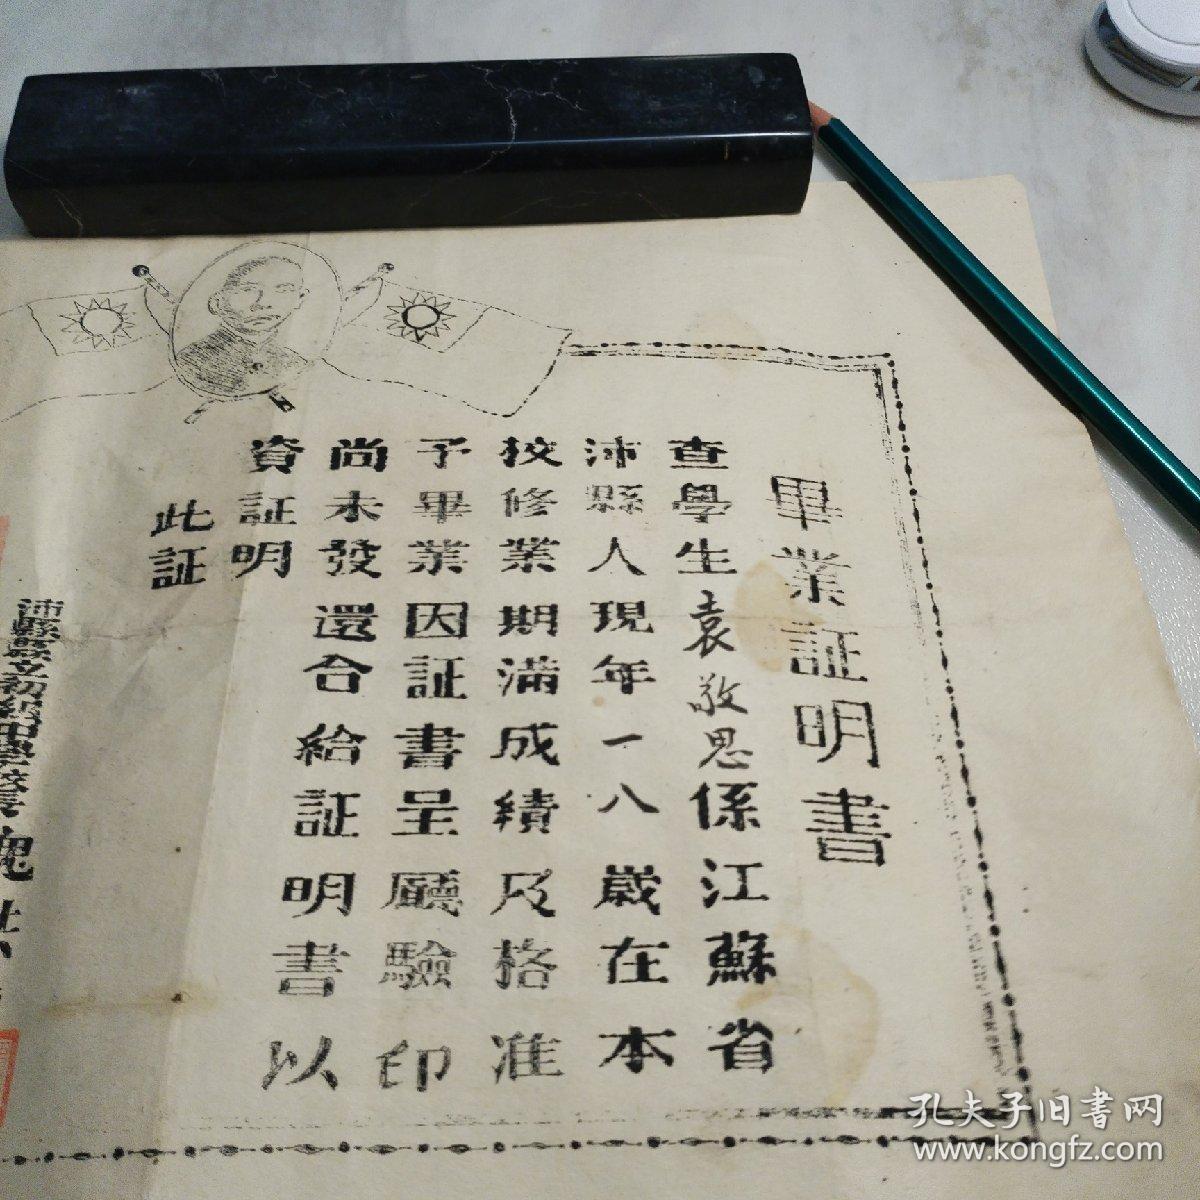 畢業証明書
查學生袁敬思係江蘇省
沛縣人現年一八歲在本
校修業期滿成績及格准
予畢業因証書呈廳驗印
尚未發還合給証明書以
資証明
此証
沛縣縣立初級中學校長
孔夫子旧書网
www.kongfz.com